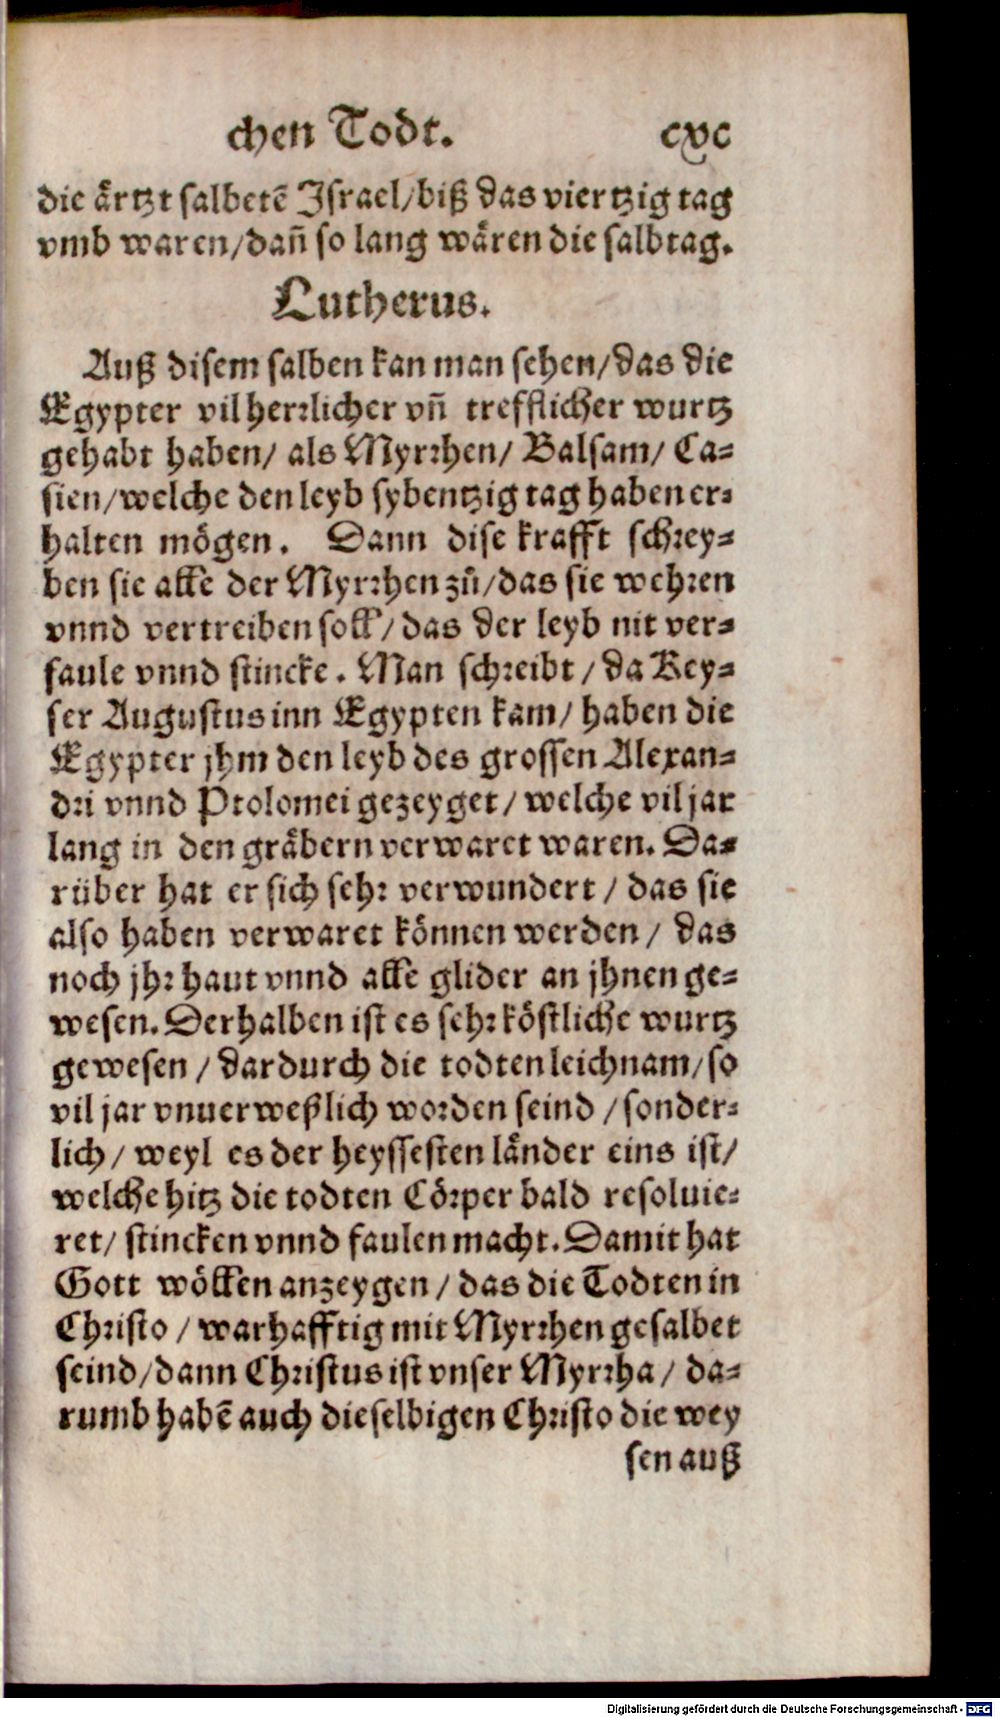 chen Todt. cxc
die ärtzt salbetē Israel/biß das viertzig tag
vmb waren/dañ so lang wären die salbtag.
Lutherus.
Auß disem salben kan man sehen/das die
Egypter vil herrlicher vñ trefflicher wurtz
gehabt haben/ als Myrrhen/ Balsam/ Ca-
sien/welche den leyb sybentzig tag haben er-
halten mögen. Dann dise krafft schrey-
ben sie alle der Myrrhen zů/das sie wehren
vnnd vertreiben soll/das der leyb nit ver-
faule vnnd stincke. Man schreibt/da Key-
ser Augustus inn Egypten kam/ haben die
Egypter jhm den leyb des grossen Alexan-
dri vnnd Ptolomei gezeyget/welche vil jar
lang in den gräbern verwaret waren. Da-
rüber hat er sich sehr verwundert/das sie
also haben verwaret können werden/ das
noch jhr haut vnnd alle glider an jhnen ge-
wesen. Derhalben ist es sehr köstliche wurtz
gewesen/dardurch die todten leichnam/so
vil jar vnuerweßlich worden seind/sonder-
lich/ weyl es der heyssesten länder eins ist/
welche hitz die todten Cörper bald resoluie-
ret/ stincken vnnd faulen macht. Damit hat
Gott wöllen anzeygen/das die Todten in
Christo/warhafftig mit Myrrhen gesalbet
seind/dann Christus ist vnser Myrrha/ da-
rumb habē auch dieselbigen Christo die wey
sen auß
Digitalisierung gefördert durch die Deutsche Forschungsgemeinschaft - DFG